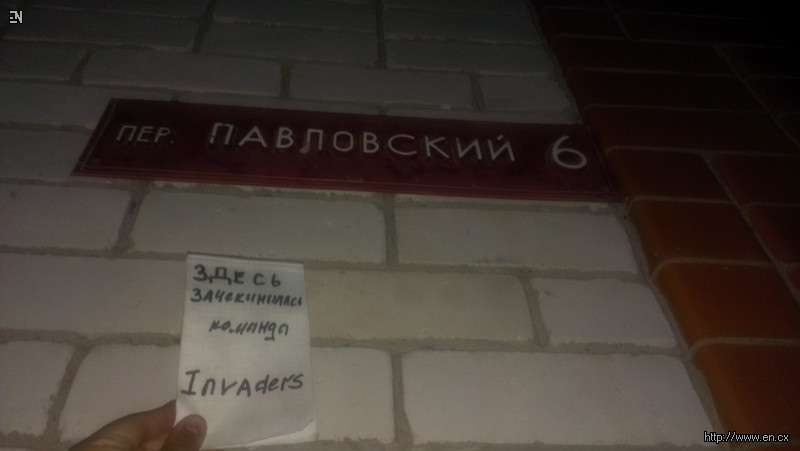 EN
ПЕР. ПАВЛОВСКИЙ 6
ЗДЕСЬ
ЗАЧЕКИНИЛАСЬ
команда
Invaders
http://www.en.cx